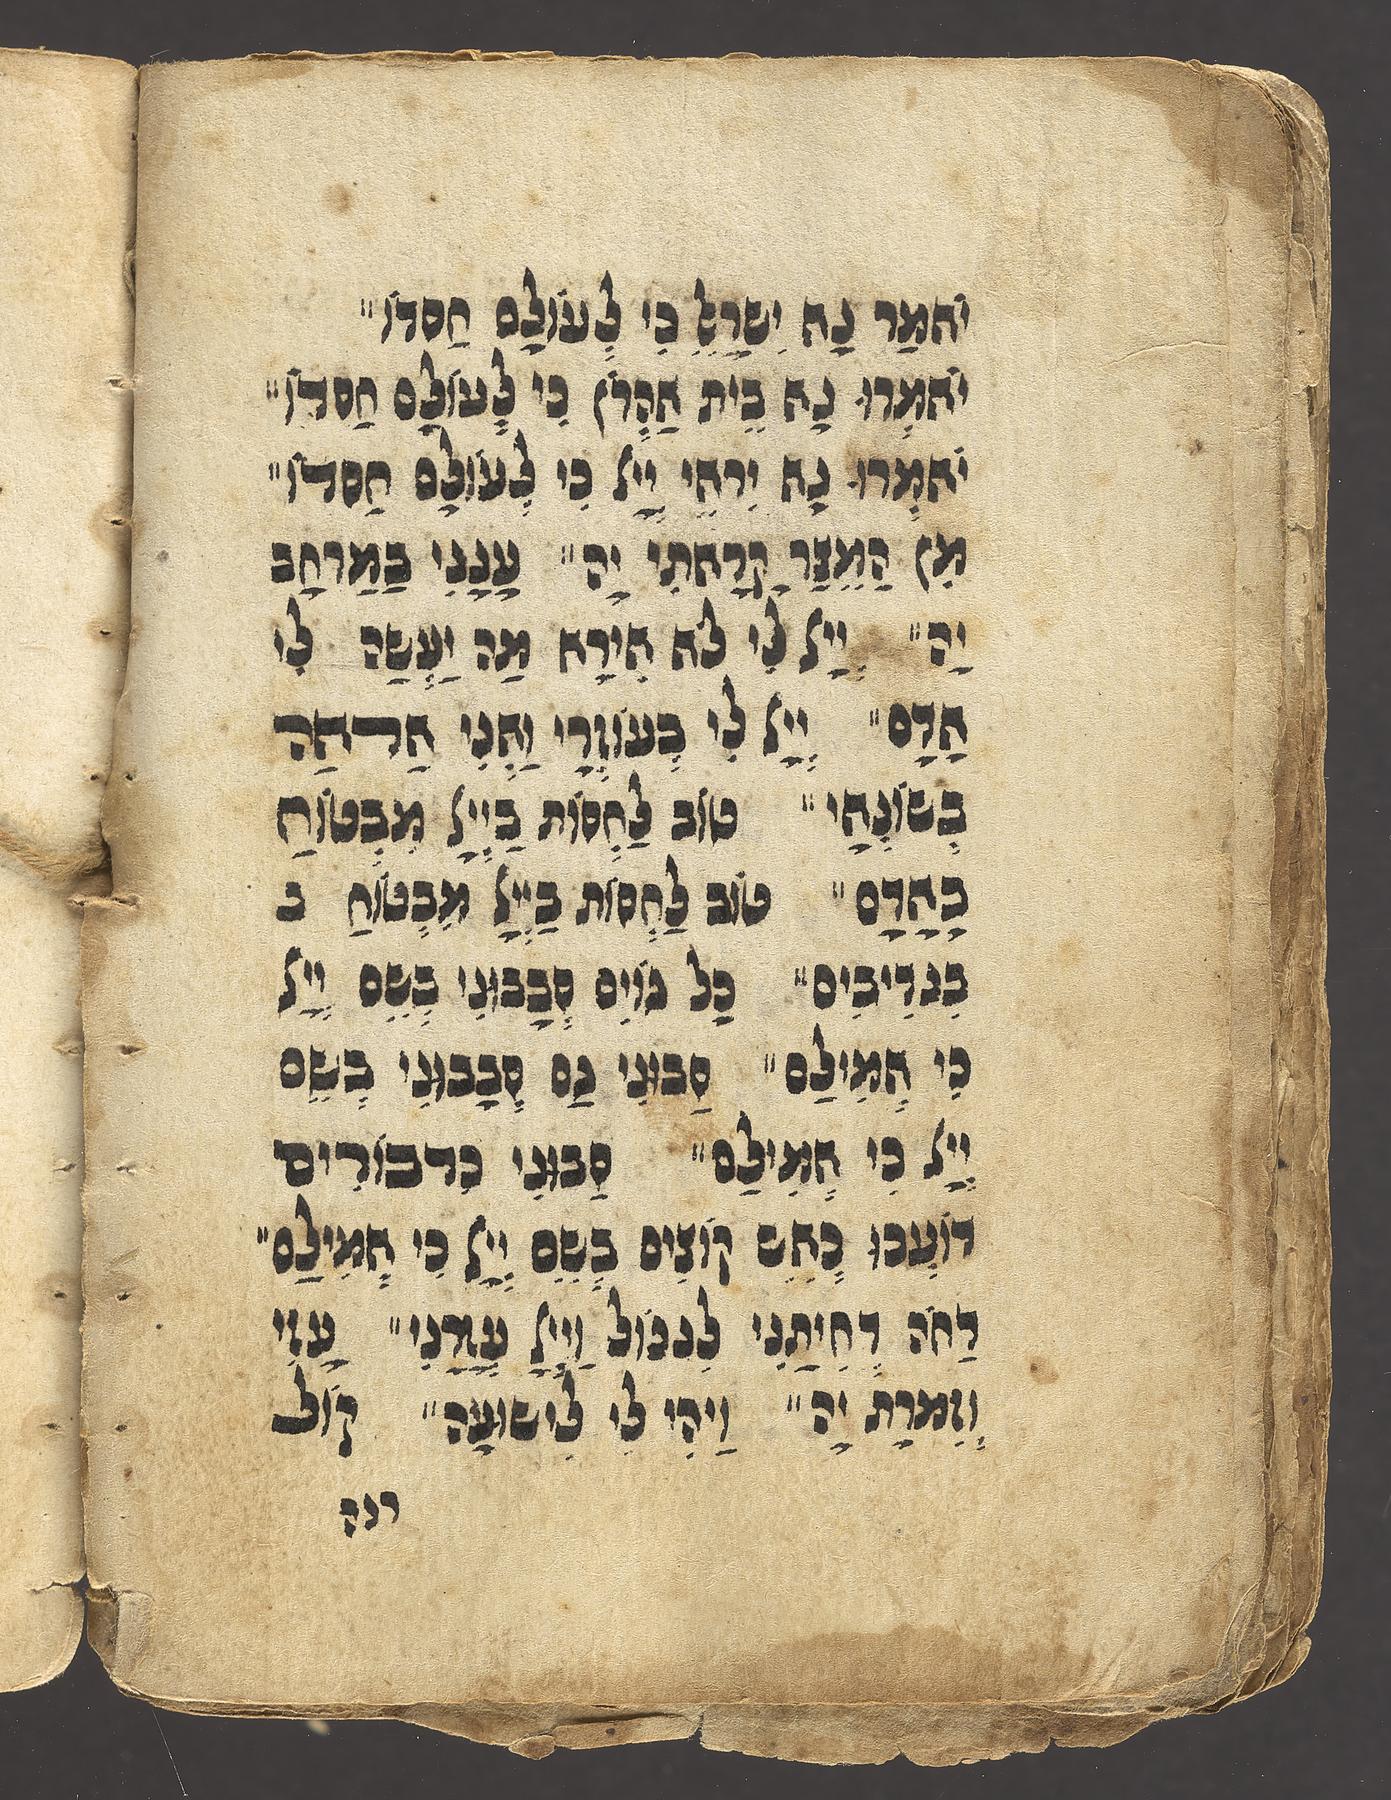 יֹאמַר נָא יִשרָלֵ כִּי לְעוֹלָם חַסדוֹ״
יֹאמְרוּ נָא בֵית אַהֲרֹן כִּי לְעוֹלָם חַסדוֹ״
יֹאמְרוּ נָא יִראֵי יְיָל כִּי לְעוֹלָם חַסדוֹ״
מִן הַמֵצַר קָרָאתִי יָה״ עָנָנִי בַמַרחָב
יָה״ יְיָל לִי לֹא אִירָא מַה יַעֲשַה לִי
אָדָם״ יְיָל לִי בְּעוֹזְרָי וַאֲנִי אַראַה
בְשוֹנְאָי״ טוֹב לַחֲסוֹת בַּיְיָל מִבְּטוֹחַ
בָּאָדָם״ טוֹב לַחֲסוֹת בַּיְיָל מִבְּטוֹחַ ב
בִנדִיבִים״ כָּל גוֹיִם סְבָבוּנִי בְּשֵם יְיָל
כִּי אֲמִילַם״ סַבוּנִי גַם סְבָבוּנִי בְּשֵם
יְיָל כִּי אֲמִילַם״ סַבוּנִי כִּדבוֹרִים
דוֹעֲכוּ כְּאֵש קוֹצִים בְּשֵם יְיָל כִּי אֲמִילַם״
דַחֹה דְחִיתַנִי לִנפּוֹל וַיְיָל עֲזָרָנִי״ עָזִי
וְזִמרָת יָה״ וַיהִי לִי לִישוּעָה״ קוֹל
רנה